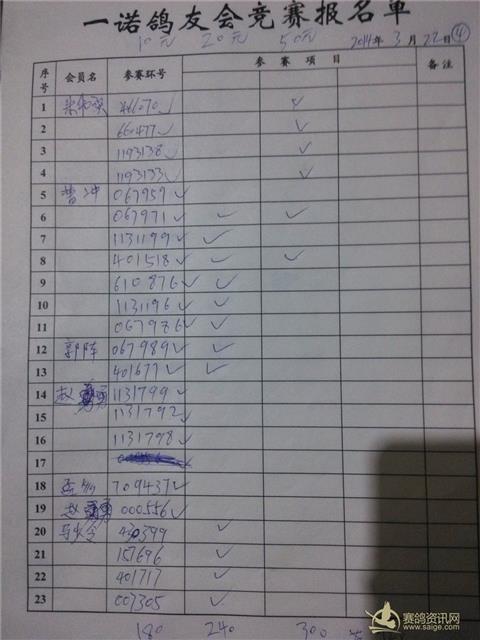 一诺鸽友会竞赛报名单
10元 20元 50元 2014年3月22日④
序号 会员名 参赛环号 参赛项目 备注
1 466070 ✓ ✓
2 660477 ✓ ✓
3 1193138 ✓ ✓
4 1193133 ✓ ✓
5 曹冲 067957 ✓
6 067971 ✓ ✓ ✓
7 1131199 ✓ ✓
8 401518 ✓ ✓ ✓
9 610876 ✓ ✓
10 1131196 ✓ ✓
11 067976 ✓ ✓
12 郭阵 067989 ✓ ✓
13 401677 ✓ ✓
14 赵勇 1131799 ✓
15 1131792 ✓
16 1131798 ✓
17
18 709437 ✓
19 赵勇 000556 ✓
20 ✓
21 157696 ✓
22 401717 ✓
23 007305 ✓
180 240 300
赛鸽资讯网
www.saige.com